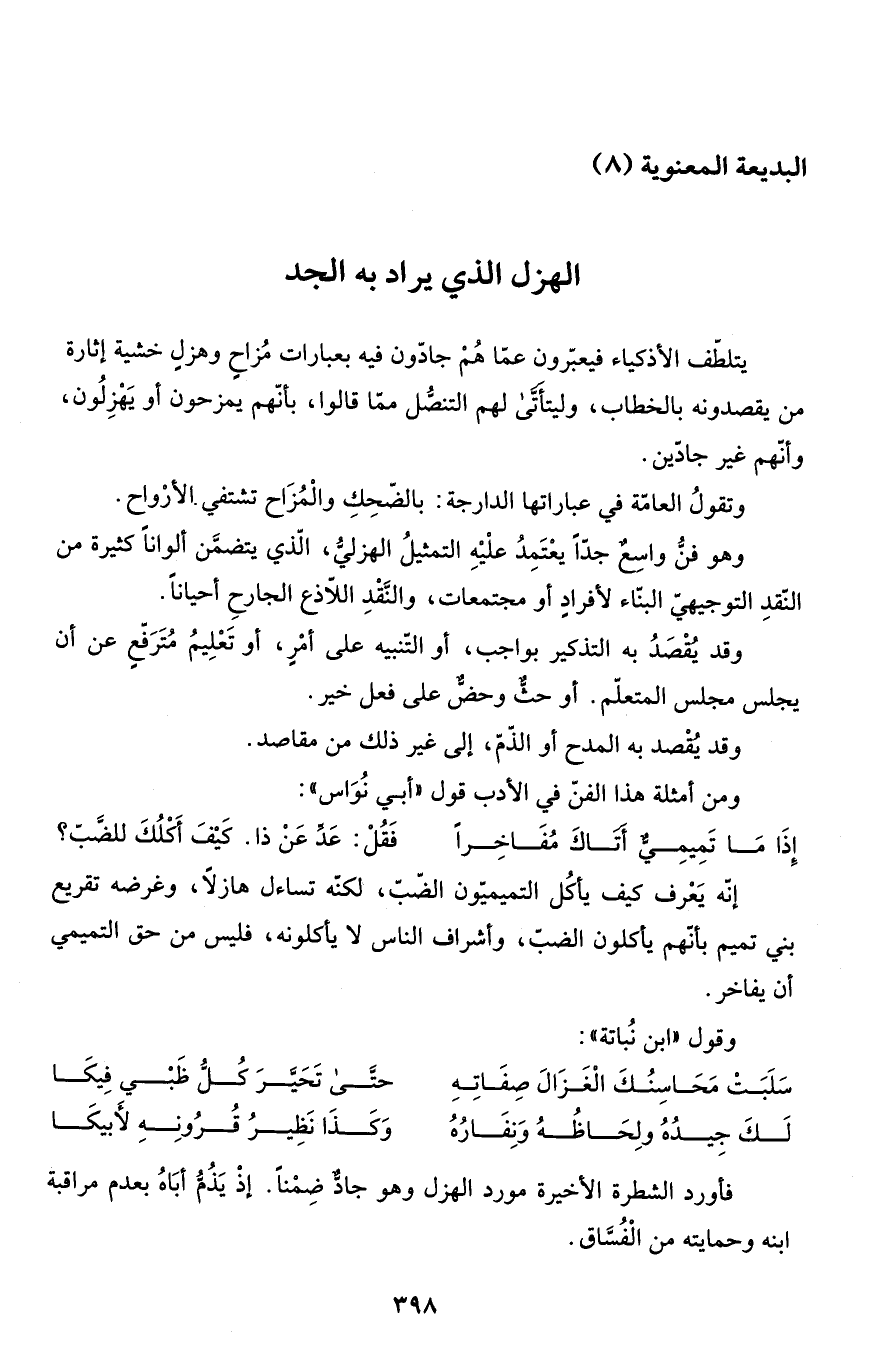 البديعة المعنوية (٨)
الهزل الذي يراد به الجد
يتلطّف الأذكياء فيعبّرون عمّا هُمْ جادّون فيه بعبارات مُزاحٍ وهزلٍ خشية إثارة
من يقصدونه بالخطاب، وليتأَتَّىٰ لهم التنصُّل ممّا قالوا، بأنّهم يمزحون أو يَهْزِلُون،
وأنّهم غير جادّين.
وتقولُ العامّة في عباراتها الدارجة: بالضّحِكِ والْمُزَاح تشتفي الأرْواح.
وهو فنٌّ واسِعٌ جدّاً يعْتَمِدُ علَيْهِ التمثيلُ الهزليُّ، الّذي يتضمَّن ألواناً كثيرة من
النّقدِ التوجيهيّ البنّاء لأفرادٍ أو مجتمعات، والنَّقْدِ اللاّذع الجارحِ أحياناً.
وقد يُقْصَدُ به التذكير بواجب، أو التّنبيه على أمْرٍ، أو تَعْلِيمُ مُتَرَفّعٍ عن أن
يجلس مجلس المتعلّم. أو حثٌّ وحضٌّ على فعل خير.
وقد يُقْصد به المدح أو الذّمّ، إلى غير ذلك من مقاصد.
ومن أمثلة هذا الفنّ في الأدب قول «أبي نُوَاس»:
إِذَا مَـا تَمِيمِـيٌّ أَتَـاكَ مُفَـاخِـراً فَقُلْ: عَدِّ عَنْ ذا. كَيْفَ أَكْلُكَ للضَّبّ؟
إنّه يَعْرف كيف يأكُل التميميّون الضّبّ، لكنّه تساءل هازلاً، وغرضه تقريع
بني تميم بأنّهم يأكلون الضبّ، وأشراف الناس لا يأكلونه، فليس من حق التميمي
أن يفاخر.
وقول «ابن نُباتة»:
سَلَبَـتْ مَحَـاسِنُـكَ الْغَـزَالَ صِفَـاتِـهِ حتَّـىٰ تَحَيَّـرَ كُـلُّ ظَبْـيٍ فِيكَـا
لَـكَ جِيـدُهُ ولِحَـاظُـهُ وَنِفَـارُهُ وَكَـذَا نَظِيـرُ قُـرُونِـهِ لأَبيكَـا
فأورد الشطرة الأخيرة مورد الهزل وهو جادٌّ ضِمْناً. إذْ يَذُمُّ أبَاهُ بعدم مراقبة
ابنه وحمايته من الْفُسَّاق.
٣٩٨